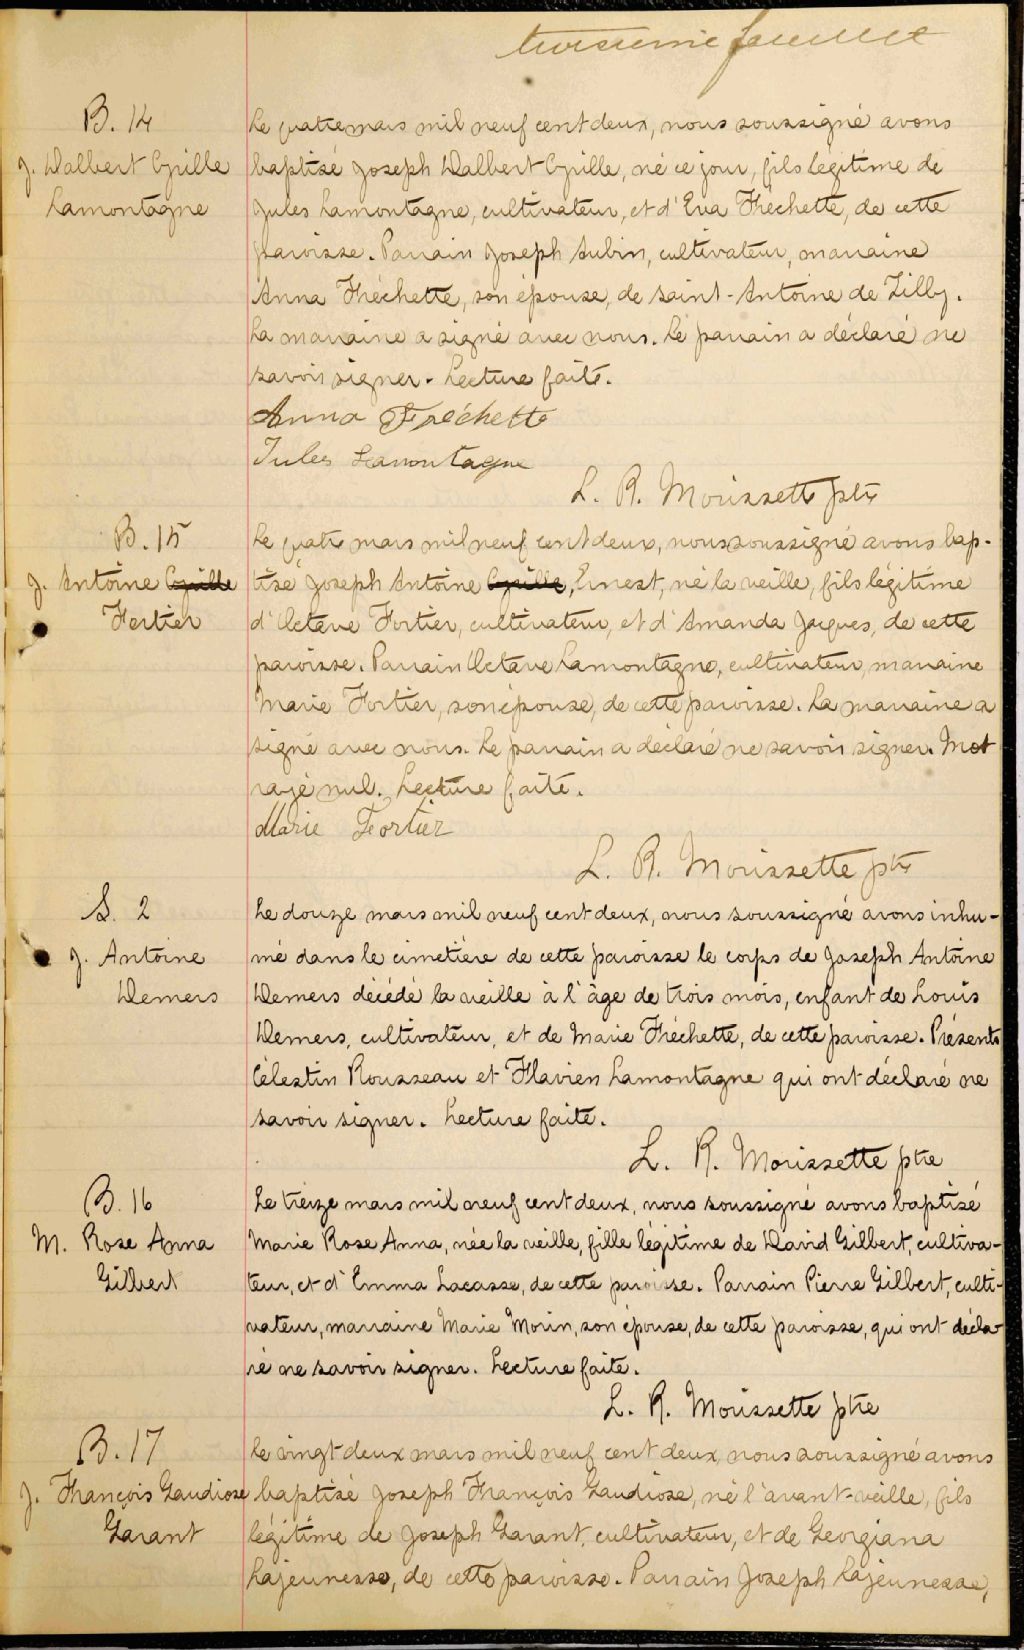 troisième feuillet
B. 14
J. Dalbert Cyrille
Lamontagne
Le quatre mars mil neuf cent deux, nous soussigné avons
baptisé Joseph Dalbert Cyrille, né ce jour, fils légitime de
Jules Lamontagne, cultivateur, et d'Eva Fréchette, de cette
paroisse. Parrain Joseph Aubin, cultivateur, marraine
Anna Fréchette, son épouse, de Saint-Antoine de Tilly.
La marraine a signé avec nous. Le parrain a déclaré ne
savoir signer. Lecture faite.
Anna Fréchette
Jules Lamontagne
L. R. Morissette ptre
B. 15
J. Antoine Cyrille
Fortier
Le quatre mars mil neuf cent deux, nous soussigné avons bap-
tisé Joseph Antoine Cyrille, Ernest, né la veille, fils légitime
d'Octave Fortier, cultivateur, et d'Amanda Jacques, de cette
paroisse. Parrain Octave Lamontagne, cultivateur, marraine
Marie Fortier, son épouse, de cette paroisse. La marraine a
signé avec nous. Le parrain a déclaré ne savoir signer. Mot
rayé nul. Lecture faite.
Marie Fortier
L. R. Morissette ptre
S. 2
J. Antoine
Demers
Le douze mars mil neuf cent deux, nous soussigné avons inhu-
mé dans le cimetière de cette paroisse le corps de Joseph Antoine
Demers décédé la veille à l'âge de trois mois, enfant de Louis
Demers, cultivateur, et de Marie Fréchette, de cette paroisse. Présents
Célestin Rousseau et Flavien Lamontagne qui ont déclaré ne
savoir signer. Lecture faite.
L. R. Morissette ptre
B. 16
M. Rose Anna
Gilbert
Le treize mars mil neuf cent deux, nous soussigné avons baptisé
Marie Rose Anna, née la veille, fille légitime de David Gilbert, cultiva-
teur, et d'Emma Lacasse, de cette paroisse. Parrain Pierre Gilbert, culti-
vateur, marraine Marie Morin, son épouse, de cette paroisse, qui ont décla-
ré ne savoir signer. Lecture faite.
L. R. Morissette ptre
B. 17
J. François Gaudiose
Garant
Le vingt deux mars mil neuf cent deux, nous soussigné avons
baptisé Joseph François Gaudiose, né l'avant-veille, fils
légitime de Joseph Garant, cultivateur, et de Georgiana
Lajeunesse, de cette paroisse. Parrain Joseph Lajeunesse,